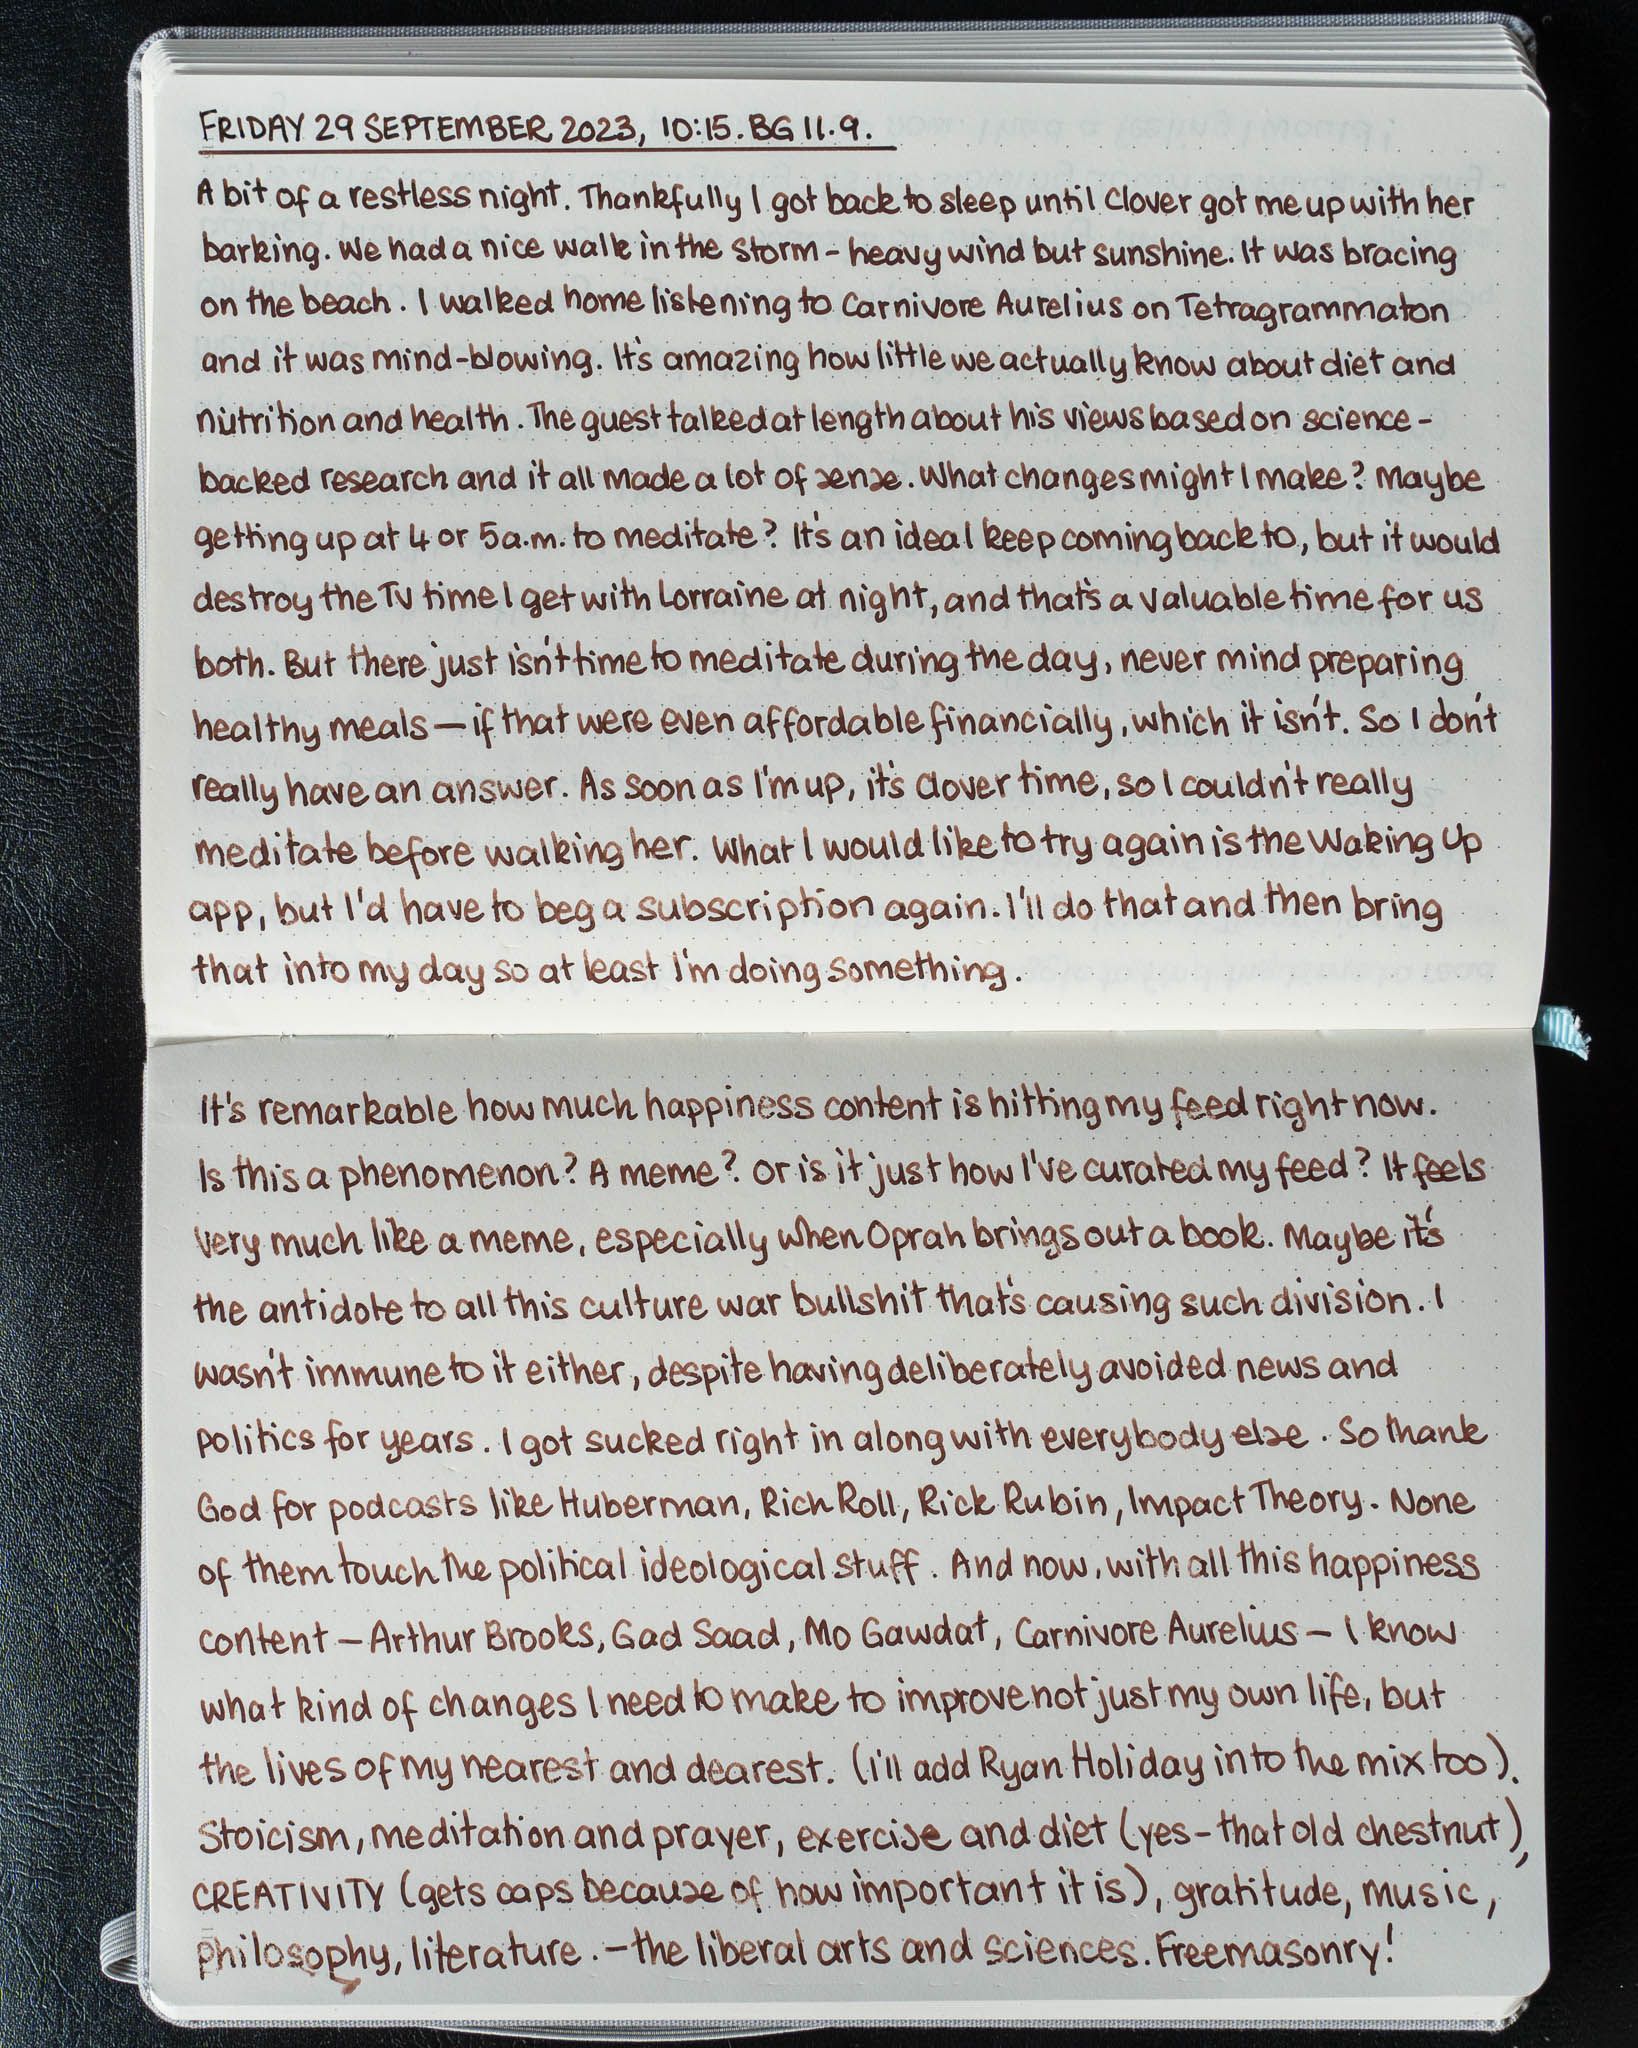 FRIDAY 29 SEPTEMBER 2023, 10:15. BG 11.9.
A bit of a restless night. Thankfully I got back to sleep until Clover got me up with her
barking. We had a nice walk in the storm – heavy wind but sunshine. It was bracing
on the beach. I walked home listening to Carnivore Aurelius on Tetragrammaton
and it was mind-blowing. It's amazing how little we actually know about diet and
nutrition and health. The guest talked at length about his views based on science-
backed research and it all made a lot of sense. What changes might I make? Maybe
getting up at 4 or 5 a.m. to meditate? It's an idea I keep coming back to, but it would
destroy the TV time I get with Lorraine at night, and that's a valuable time for us
both. But there just isn't time to meditate during the day, never mind preparing
healthy meals – if that were even affordable financially, which it isn't. So I don't
really have an answer. As soon as I'm up, it's Clover time, so I couldn't really
meditate before walking her. What I would like to try again is the Waking Up
app, but I'd have to beg a subscription again. I'll do that and then bring
that into my day so at least I'm doing something.
It's remarkable how much happiness content is hitting my feed right now.
Is this a phenomenon? A meme? Or is it just how I've curated my feed? It feels
very much like a meme, especially when Oprah brings out a book. Maybe it's
the antidote to all this culture war bullshit that's causing such division. I
wasn't immune to it either, despite having deliberately avoided news and
politics for years. I got sucked right in along with everybody else. So thank
God for podcasts like Huberman, Rich Roll, Rick Rubin, Impact Theory. None
of them touch the political ideological stuff. And now, with all this happiness
content – Arthur Brooks, Gad Saad, Mo Gawdat, Carnivore Aurelius – I know
what kind of changes I need to make to improve not just my own life, but
the lives of my nearest and dearest. (I'll add Ryan Holiday into the mix too).
Stoicism, meditation and prayer, exercise and diet (yes – that old chestnut),
CREATIVITY (gets caps because of how important it is), gratitude, music,
philosophy, literature. – the liberal arts and sciences. Freemasonry!